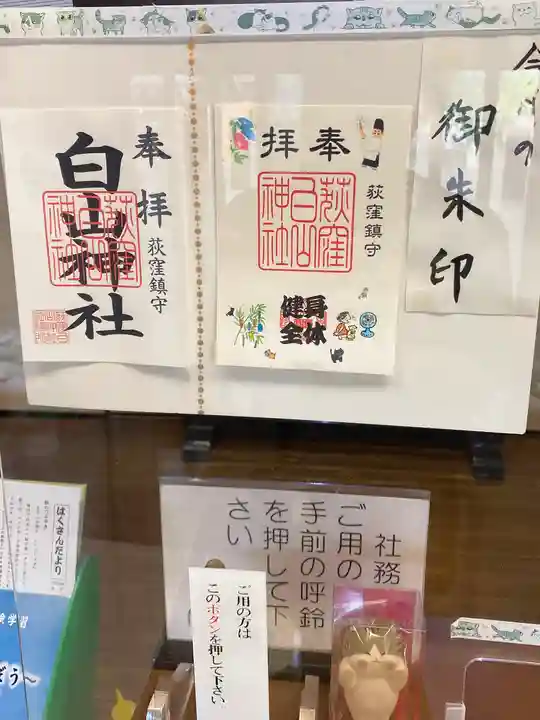 今月の
御朱印
奉拝
荻窪鎮守
荻窪
白山
神社
身体
健全
奉拝
荻窪鎮守
白山神社
荻窪
白山
神社
社務
ご用の
手前の呼鈴
を押して下
さい
ご用の方は
このボタンを押して下さい
はくさんだより